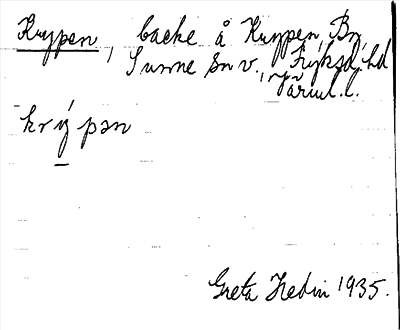 Krypen, backe å Krypen, Bn,
Sunne sn v., Fryksd. hd
Värml. l.
krýpən
Greta Hedin 1935.